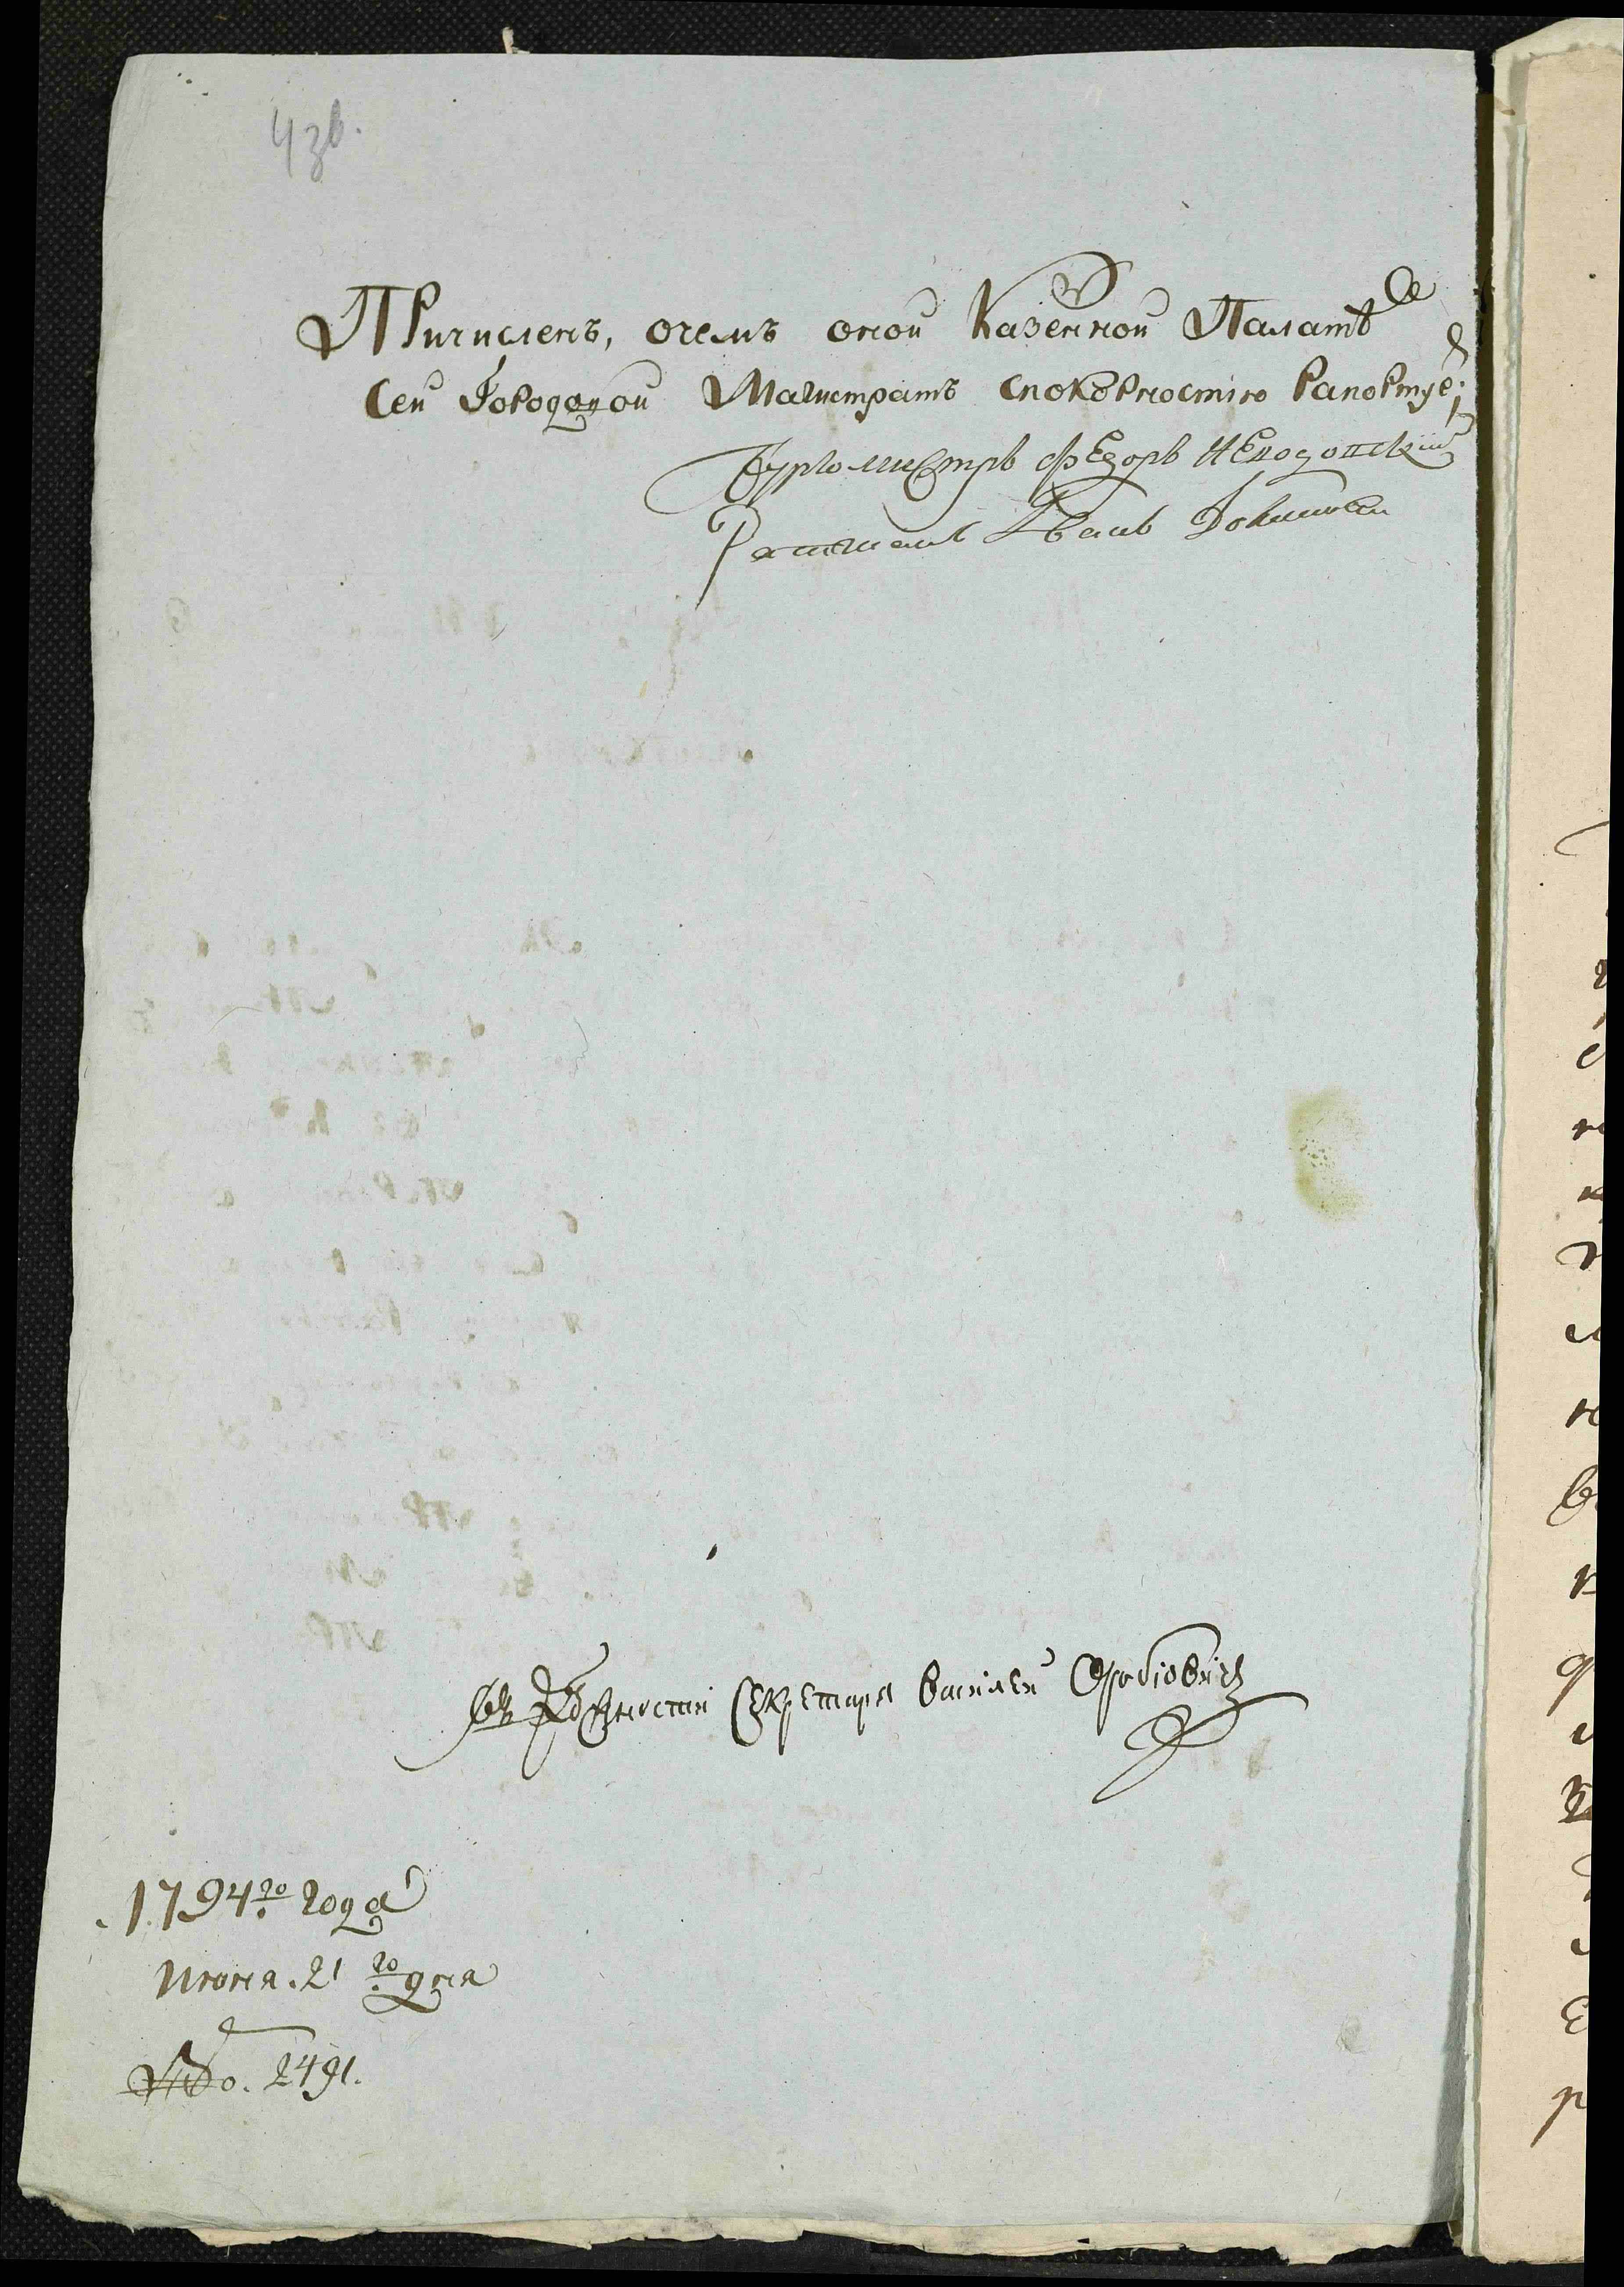 4 зв.
Причисленъ, очемъ оной Казенной Палатѣ
Сей Городовой Магистратъ спокорностію рапортуе
Бургомистръ Федоръ
Ратманъ Иванъ
въ должности Секретаря Василей
1794го года
июня 21 го дня
№о. 2491.